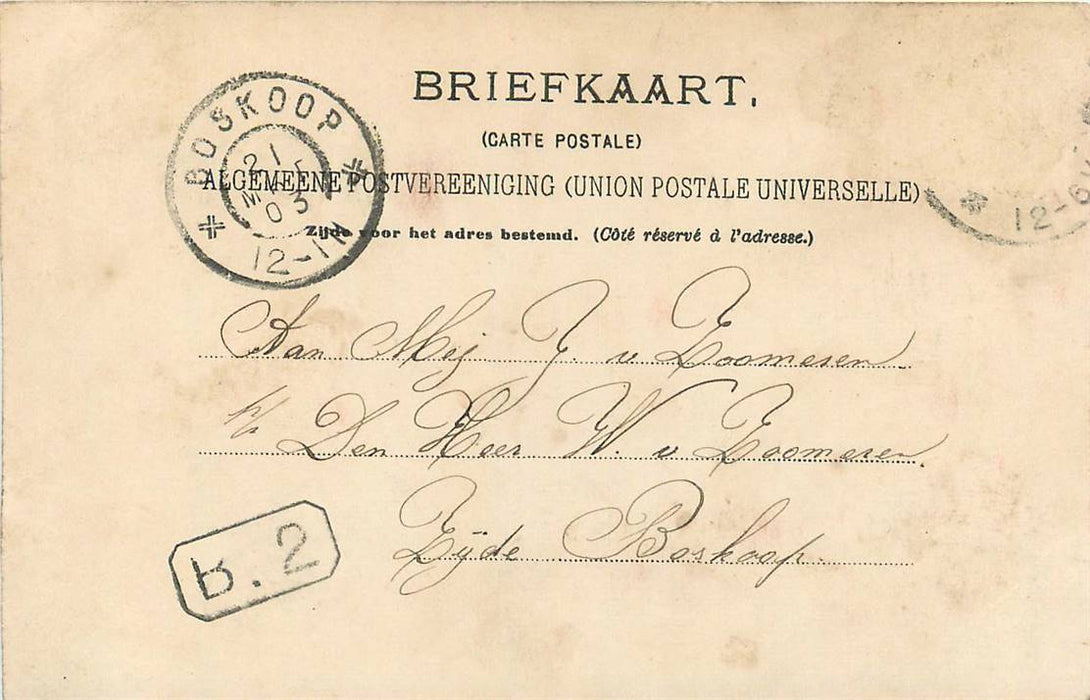 BRIEFKAART.
(CARTE POSTALE)
ALGEMEENE POSTVEREENIGING (UNION POSTALE UNIVERSELLE)
Zijde voor het adres bestemd. (Côté réservé à l'adresse.)
BOSKOOP
21
MEI
03
12-1N
12-6
Aan Mej J. v Zoomeren
p/a Den Heer W. v Zoomeren.
Zijde Boskoop.
R.2